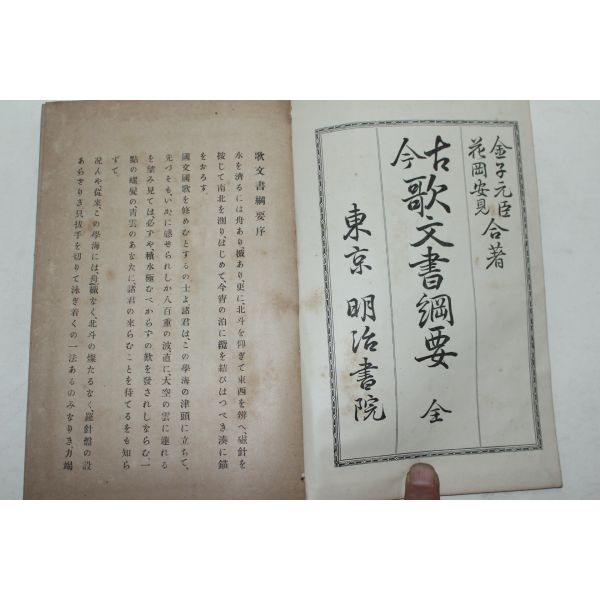 金子元臣
花岡安見
合著
古今歌文書綱要 全
東京 明治書院
歌文書綱要序
水を濟るには舟あり、檝あり、更に、北斗を仰ぎて東西を辨へ、磁針を
按じて南北を測り、はじめて、今宵の泊に纜を結びはつべき湊に錨
をおろす。
國文國歌を修めむとするの士よ、諸君は、この學海の津頭に立ちて、
先づそも、いかに感ぜられしか、八百重の波、直に、大空の雲に連れる
を望み見ては、必ずや積水極むべからずの歎を發されしならむ、一
點の螺髮の靑雲のあなたに諸君の來らむことを待てるをも知ら
ずて。
況んや、從來、この學海には、舟檝なく、北斗の燦たるなく、羅針盤の設
あらざりき、只拔手を切りて泳ぎ着くの一法あるのみなりき、力竭